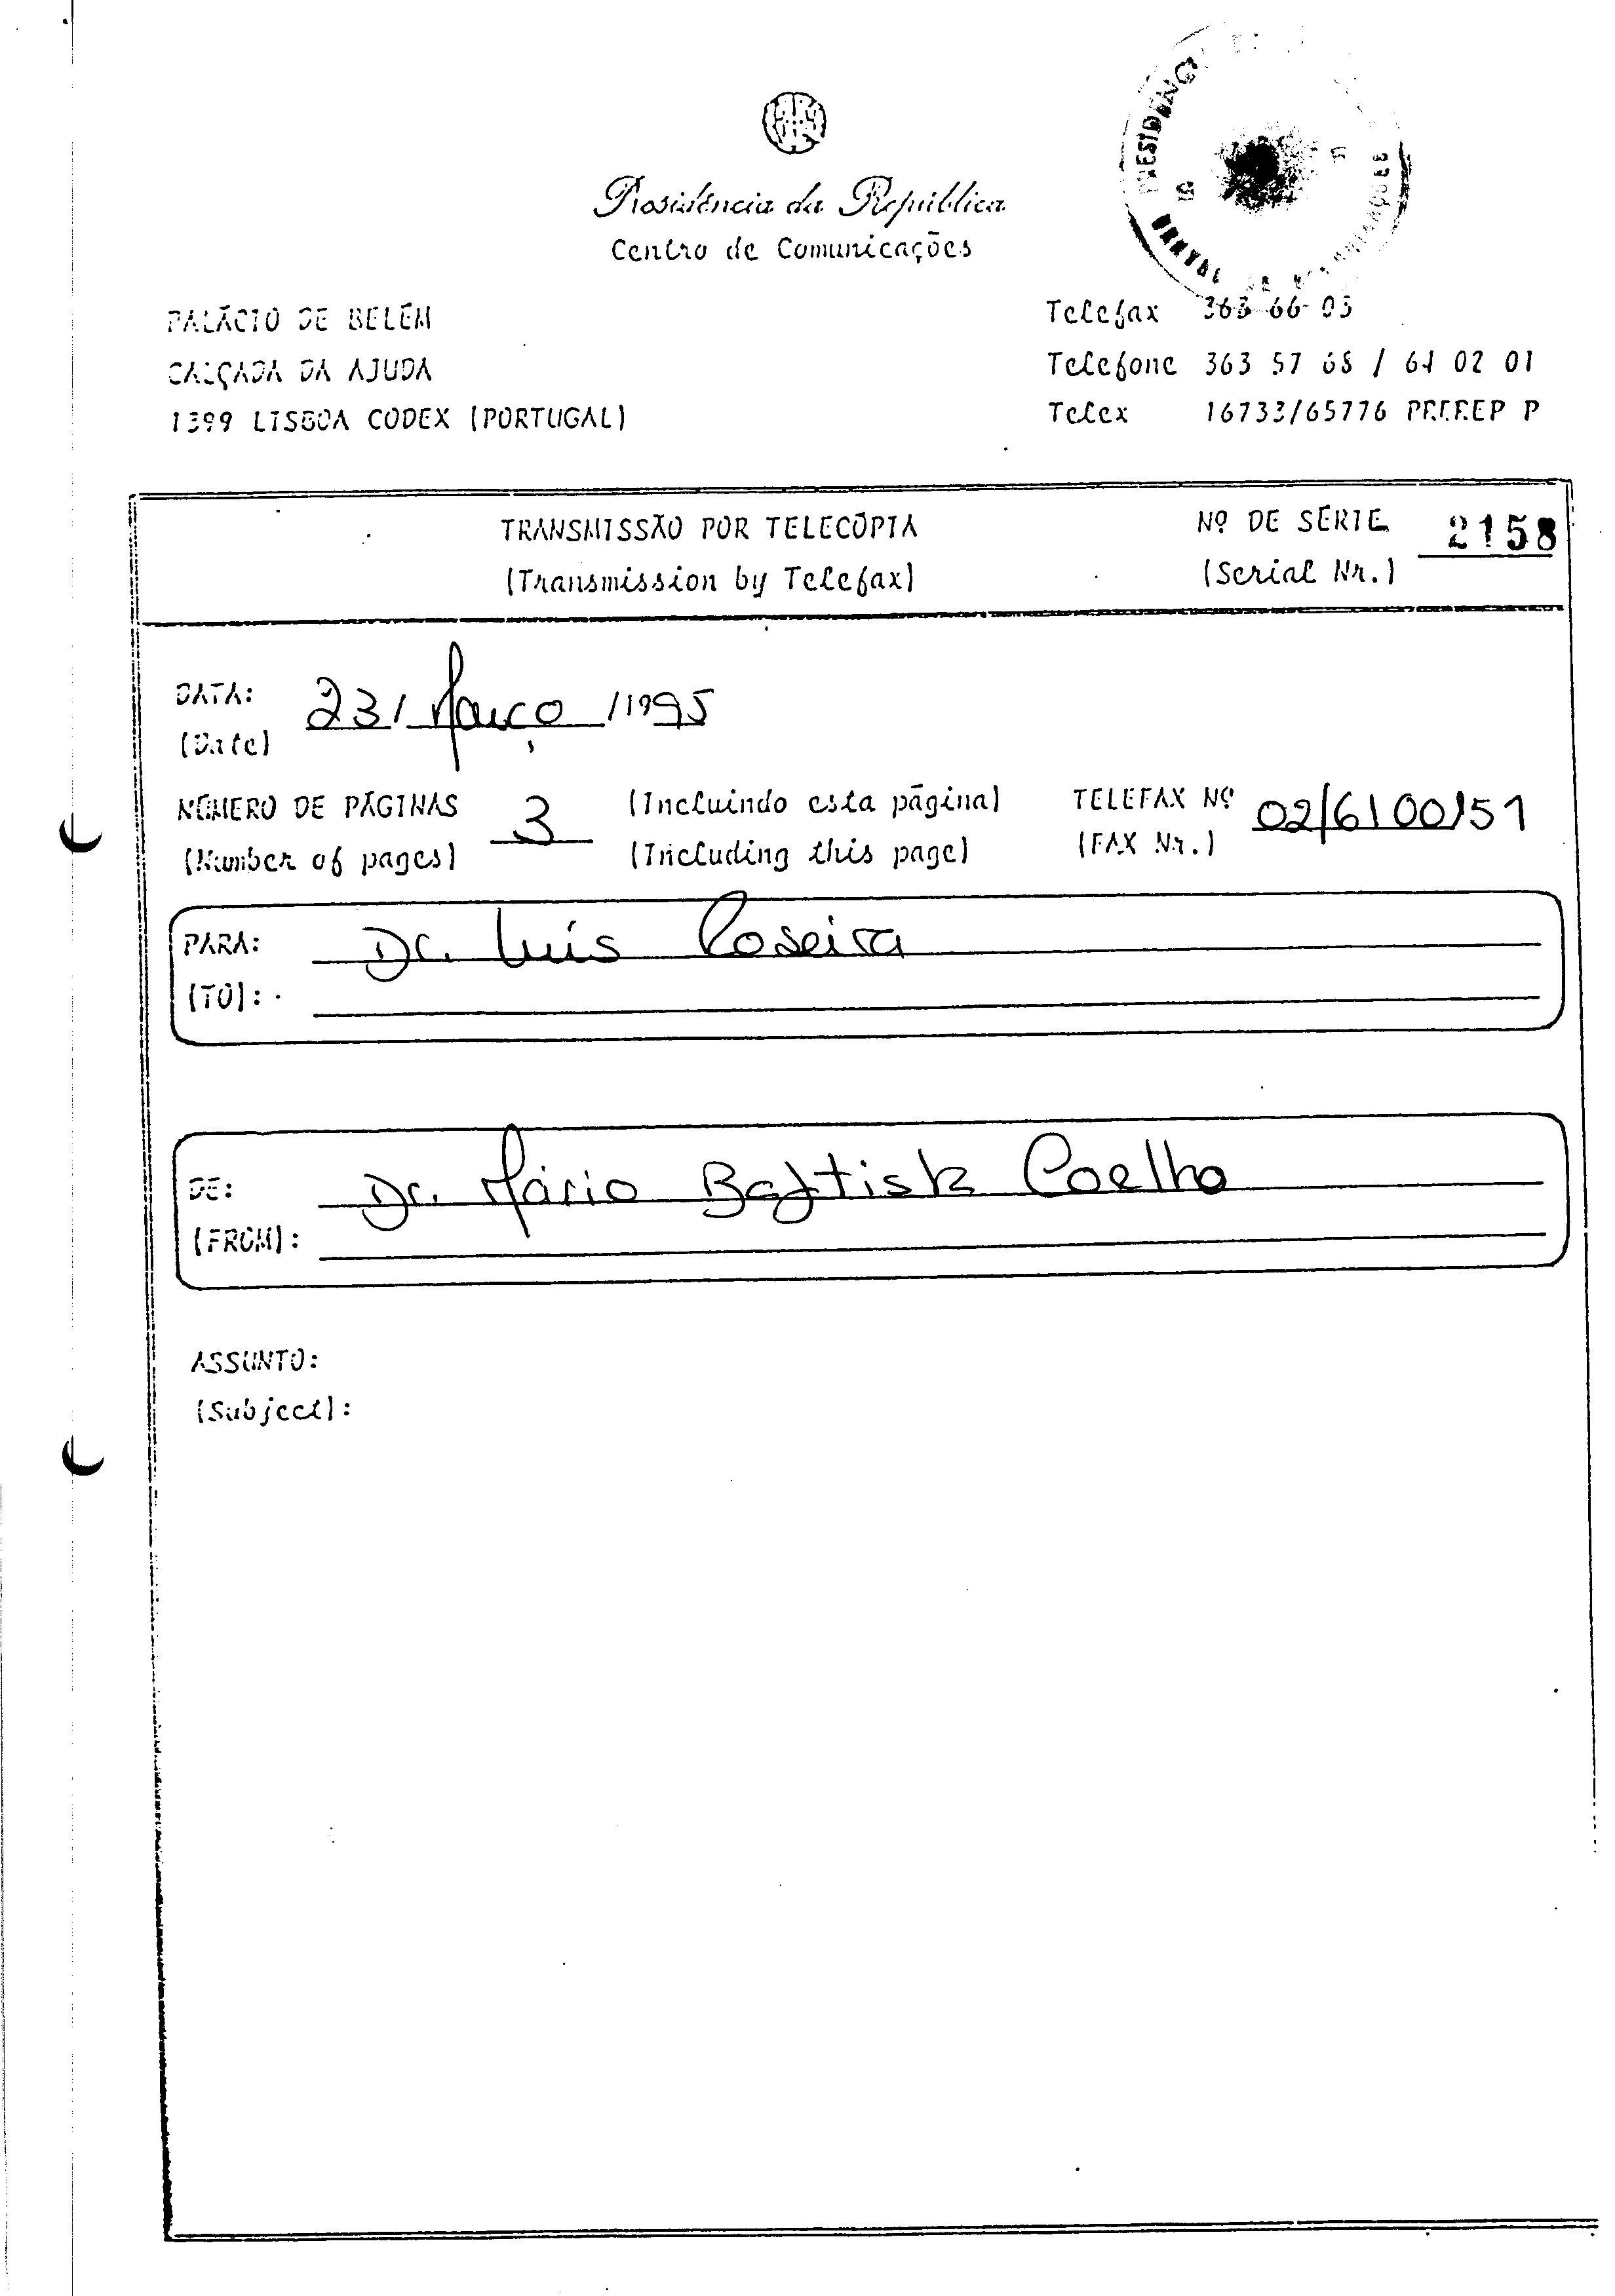 Presidência da República
Centro de Comunicações
PRESIDÊNCIA
PALÁCIO DE BELÉM
CALÇADA DA AJUDA
1399 LISBOA CODEX (PORTUGAL)
Telefax 363 66 03
Telefone 363 57 68 / 64 02 01
Telex 16733/65776 PREREP P
TRANSMISSÃO POR TELECÓPIA
(Transmission by Telefax)
Nº DE SÉRIE 2158
(Serial Nr.)
DATA: 23/Março/1995
(Date)
NÚMERO DE PÁGINAS 3 (Incluindo esta página)
(Number of pages) (Including this page)
TELEFAX Nº 02/6100151
(FAX Nr.)
PARA: Dr. Luís Roseira
(TO):
DE: Dr. Mário Baptista Coelho
(FROM):
ASSUNTO:
(Subject):